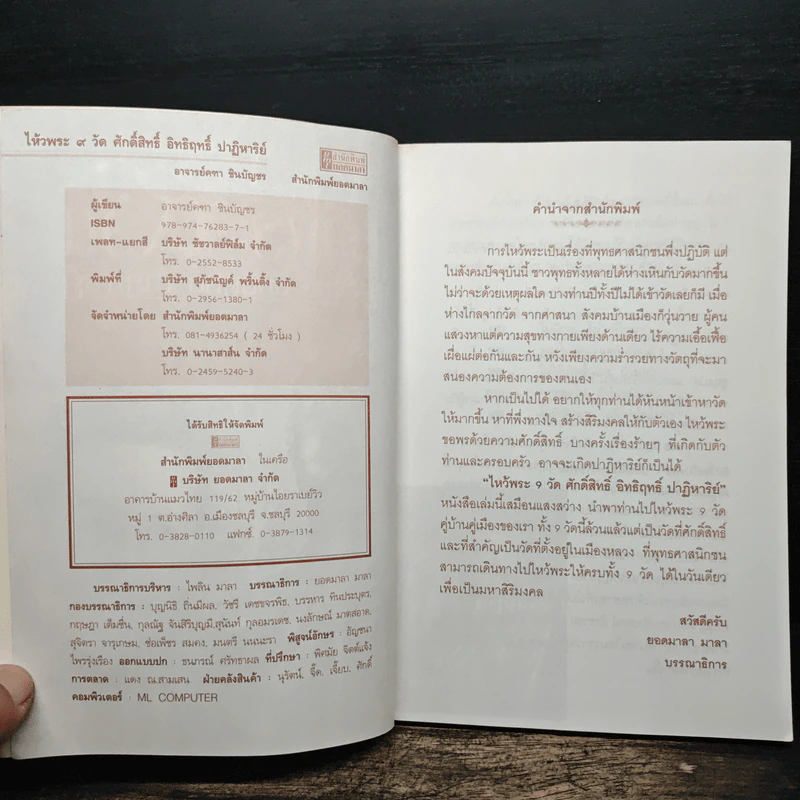 ไหว้พระ ๙ วัด ศักดิ์สิทธิ์ อิทธิฤทธิ์ ปาฏิหาริย์
อาจารย์คฑา ชินบัญชร
สำนักพิมพ์
ยอดมาลา
สำนักพิมพ์ยอดมาลา
ผู้เขียน อาจารย์คฑา ชินบัญชร
ISBN 978-974-76283-7-1
เพลท-แยกสี บริษัท ชัชวาลย์ฟิล์ม จำกัด
โทร. 0-2552-8533
พิมพ์ที่ บริษัท สุภัชนิญค์ พริ้นติ้ง จำกัด
โทร. 0-2956-1380-1
จัดจำหน่ายโดย สำนักพิมพ์ยอดมาลา
โทร. 081-4936254 ( 24 ชั่วโมง )
บริษัท นานาสาส์น จำกัด
โทร. 0-2459-5240-3
ได้รับสิทธิให้จัดพิมพ์
สำนักพิมพ์ยอดมาลา ในเครือ
บริษัท ยอดมาลา จำกัด
อาคารบ้านแมวไทย 119/62 หมู่บ้านไอยราเบย์วิว
หมู่ 1 ต.อ่างศิลา อ.เมืองชลบุรี จ.ชลบุรี 20000
โทร. 0-3828-0110 แฟกซ์. 0-3879-1314
บรรณาธิการบริหาร : ไพลิน มาลา บรรณาธิการ : ยอดมาลา มาลา
กองบรรณาธิการ : บุญนิธิ ถิ่นมีผล, วัชวี เดชขจรพิช, บรรหาร หินประบุตร,
กฤษฎา เต็มชื่น, กุลณัฐ จันสิริบุญมี,สุนันท์ กุลอมรเดช, นงลักษณ์ มาตสอาด,
สุจิตรา จารุเกษม, ช่อเพ็ชร สมคง, มนตรี นนนะรา พิสูจน์อักษร : อัญชนา
ไพรรุ่งเรือง ออกแบบปก : ธนกรณ์ ศรัทธาผล ที่ปรึกษา : พิศมัย จิตต์แจ้ง
การตลาด : แดง ณ.สามเสน ฝ่ายคลังสินค้า : นุรัตน์, จี๊ด, เจี๊ยบ, ศักดิ์
คอมพิวเตอร์ : ML COMPUTER
คำนำจากสำนักพิมพ์
การไหว้พระเป็นเรื่องที่พุทธศาสนิกชนพึงปฏิบัติ แต่
ในสังคมปัจจุบันนี้ ชาวพุทธทั้งหลายได้ห่างเหินกับวัดมากขึ้น
ไม่ว่าจะด้วยเหตุผลใด บางท่านปีทั้งปีไม่ได้เข้าวัดเลยก็มี เมื่อ
ห่างไกลจากวัด จากศาสนา สังคมบ้านเมืองก็วุ่นวาย ผู้คน
แสวงหาแต่ความสุขทางกายเพียงด้านเดียว ไร้ความเอื้อเฟื้อ
เผื่อแผ่ต่อกันและกัน หวังเพียงความร่ำรวยทางวัตถุที่จะมา
สนองความต้องการของตนเอง
หากเป็นไปได้ อยากให้ทุกท่านได้หันหน้าเข้าหาวัด
ให้มากขึ้น หาที่พึ่งทางใจ สร้างสิริมงคลให้กับตัวเอง ไหว้พระ
ขอพรด้วยความศักดิ์สิทธิ์ บางครั้งเรื่องร้ายๆ ที่เกิดกับตัว
ท่านและครอบครัว อาจจะเกิดปาฏิหาริย์ก็เป็นได้
"ไหว้พระ 9 วัด ศักดิ์สิทธิ์ อิทธิฤทธิ์ ปาฏิหาริย์"
หนังสือเล่มนี้เสมือนแสงสว่าง นำพาท่านไปไหว้พระ 9 วัด
คู่บ้านคู่เมืองของเรา ทั้ง 9 วัดนี้ล้วนแล้วแต่เป็นวัดที่ศักดิ์สิทธิ์
และที่สำคัญเป็นวัดที่ตั้งอยู่ในเมืองหลวง ที่พุทธศาสนิกชน
สามารถเดินทางไปไหว้พระให้ครบทั้ง 9 วัด ได้ในวันเดียว
เพื่อเป็นมหาสิริมงคล
สวัสดีครับ
ยอดมาลา มาลา
บรรณาธิการ